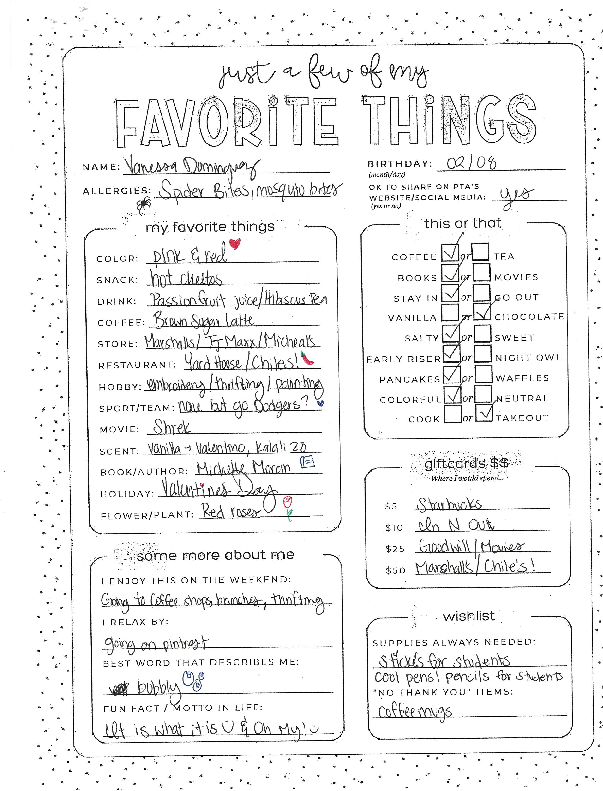 just a few of my
FAVORITE THINGS
NAME: Vanessa Dominguez
BIRTHDAY: 02/08
(month/day)
ALLERGIES: Spider Bites, mosquito bites
OK TO SHARE ON PTA'S
WEBSITE/SOCIAL MEDIA: yes
(yes or no)
my favorite things
COLOR: pink & red
SNACK: hot cheetos
DRINK: Passionfruit juice/Hibiscus Tea
COFFEE: Brown Sugar latte
STORE: Marshalls/TJ Maxx/Micheals
RESTAURANT: Yard House/Chiles!
HOBBY: embroidery/thrifting/painting
SPORT/TEAM: none but go Dodgers?
MOVIE: Shrek
SCENT: Vanilla → Valentino, Kalali 28
BOOK/AUTHOR: Michelle Moran
HOLIDAY: Valentines Day
FLOWER/PLANT: Red roses
this or that
COFFEE ✓ or TEA
BOOKS ✓ or MOVIES
STAY IN ✓ or GO OUT
VANILLA or ✓ CHOCOLATE
SALTY ✓ or SWEET
EARLY RISER ✓ or NIGHT OWL
PANCAKES ✓ or WAFFLES
COLORFUL ✓ or NEUTRAL
COOK or ✓ TAKEOUT
giftcards $$
Where I would spend...
$5 Starbucks
$10 In N Out
$25 Goodwill/Movies
$50 Marshalls/Chile's!
some more about me
I ENJOY THIS ON THE WEEKEND:
Going to Coffee shops, brunches, thrifting
I RELAX BY:
going on pintrest
BEST WORD THAT DESCRIBES ME:
bubbly
FUN FACT / MOTTO IN LIFE:
It is what it is & Oh My!
wishlist
SUPPLIES ALWAYS NEEDED:
Stickers for students
Cool pens! pencils for students
"NO THANK YOU" ITEMS:
coffee mugs